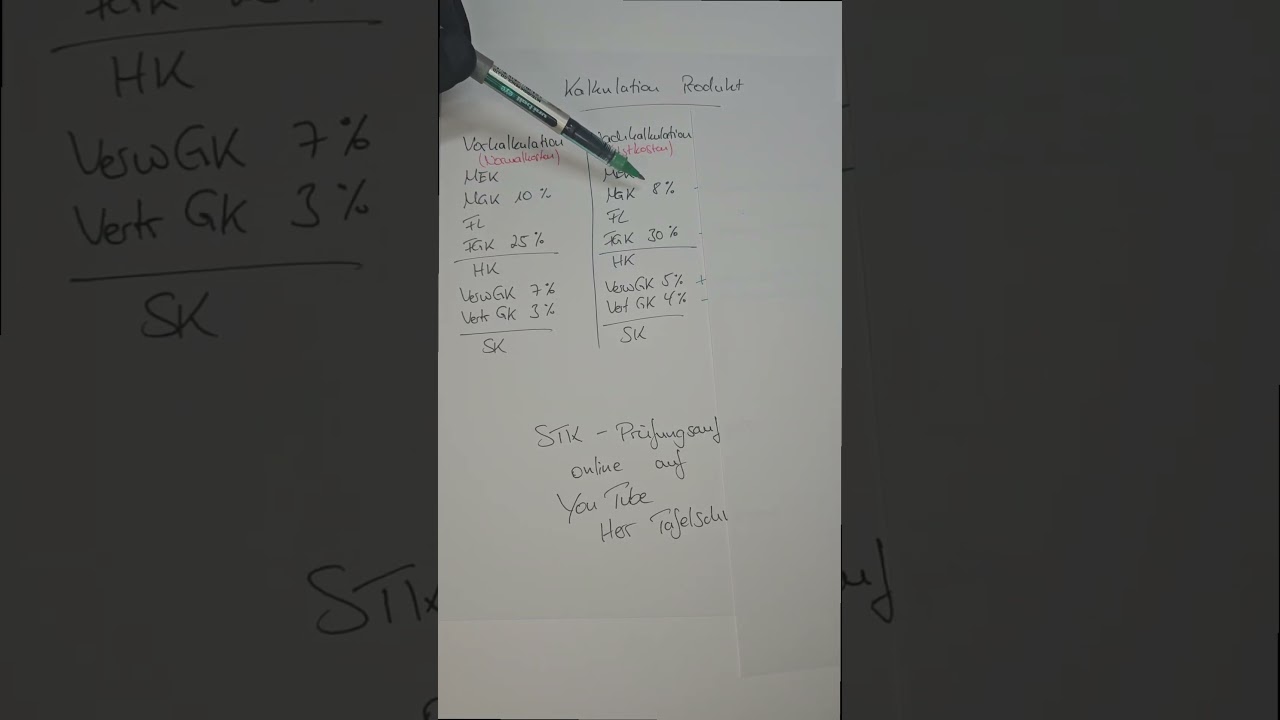 Kalkulation Produkt
Vorkalkulation
(Normalkosten)
MEK
MGK 10 %
FL
FGK 25 %
HK
VerwGK 7 %
Vertr GK 3 %
SK
Nachkalkulation
(Istkosten)
MEK
MGK 8 % -
FL
FGK 30 % -
HK
VerwGK 5 % +
Vert GK 4 % -
SK
STK - Prüfungsauf
online auf
YouTube
Herr Tafelsch
HK
VerwGK 7 %
Vertr GK 3 %
SK